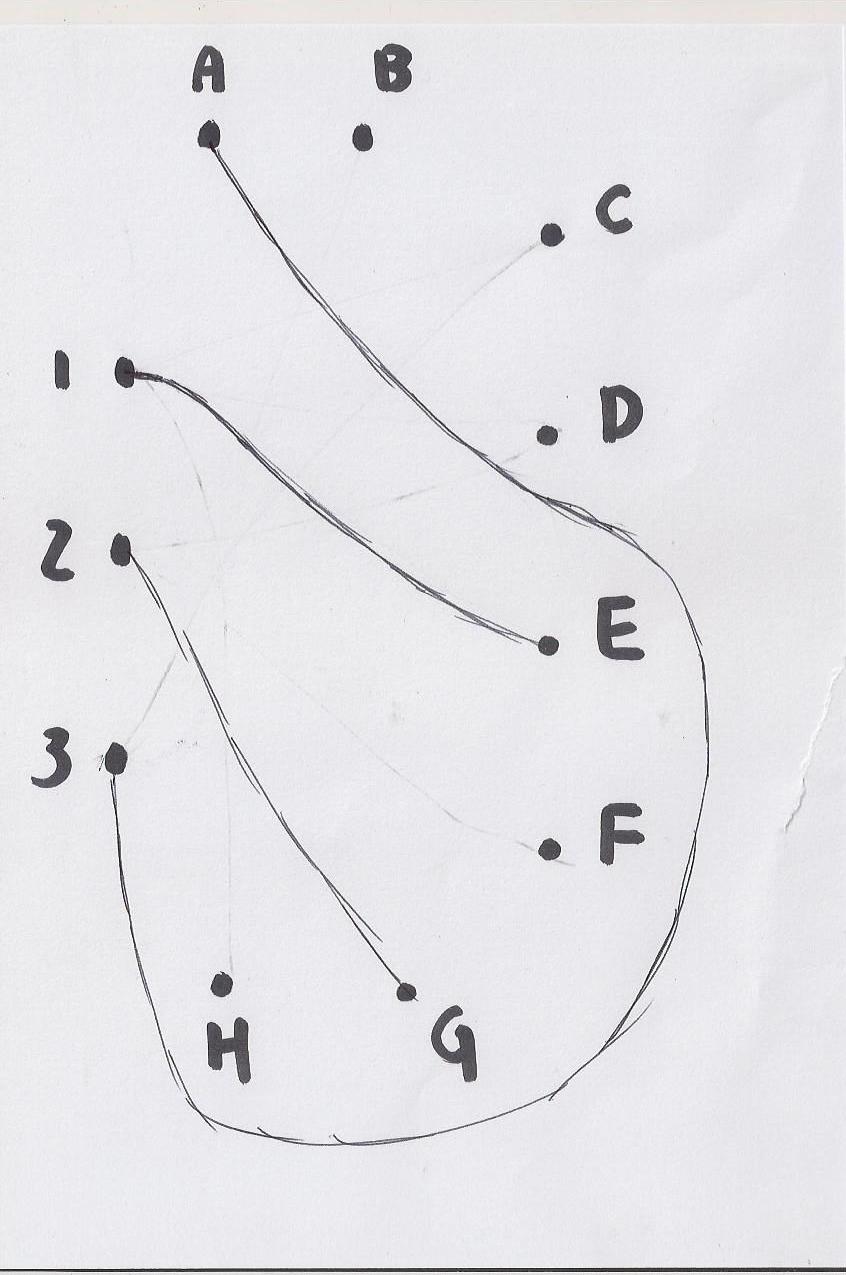 A B
C
1
D
2
E
3
F
H G